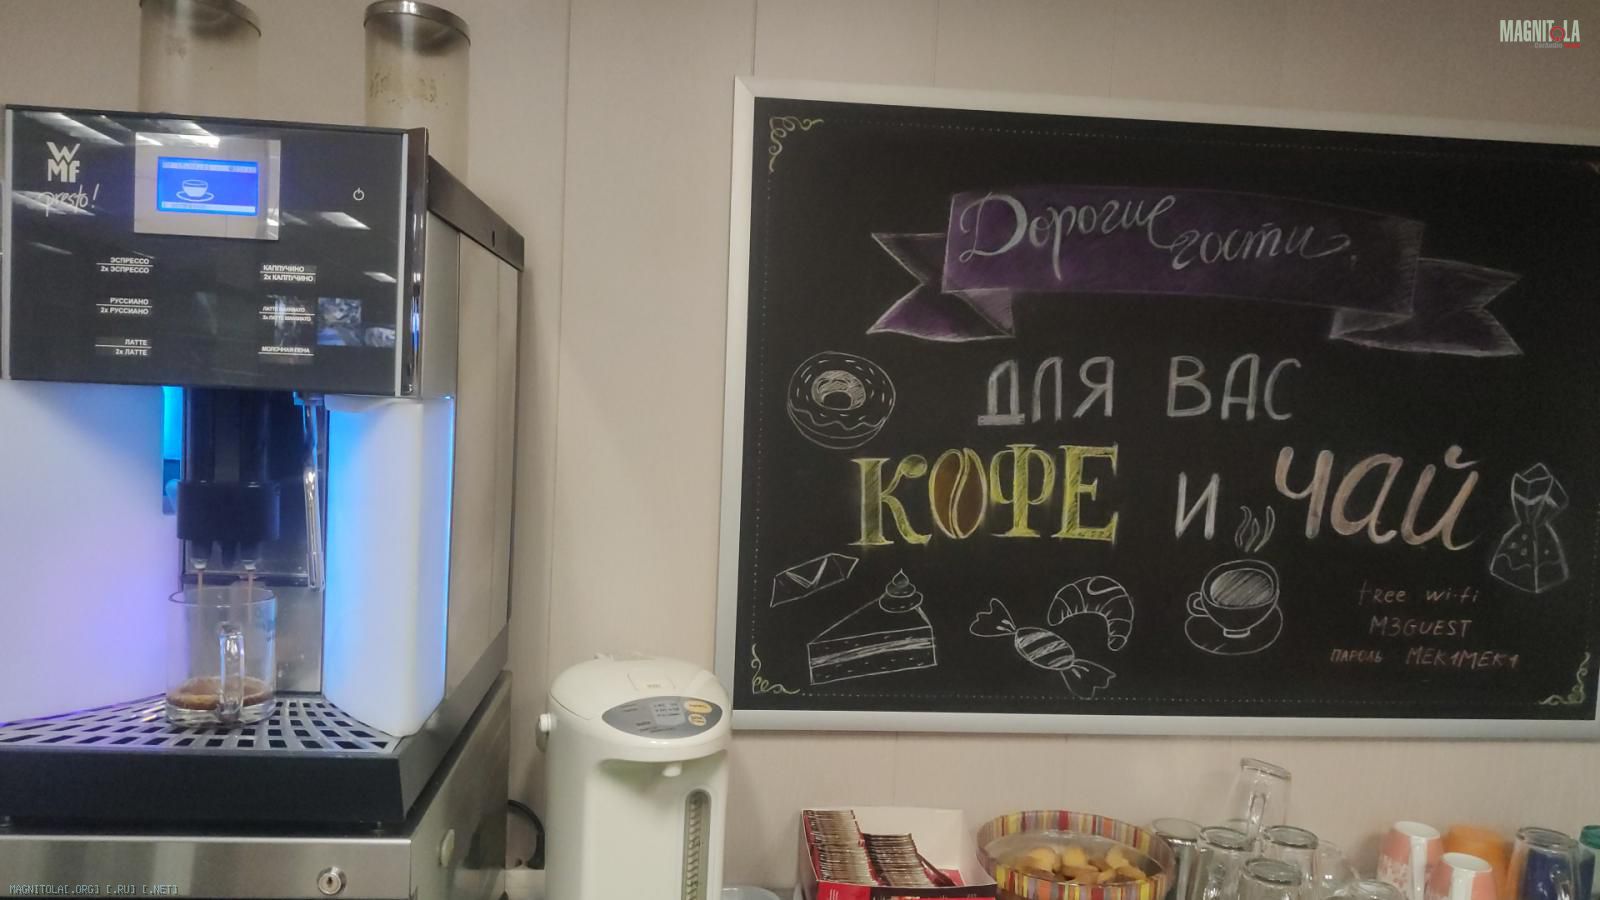 MAGNITOLA
WMF
presto!
ЭСПРЕССО
2x ЭСПРЕССО
КАППУЧИНО
2x КАППУЧИНО
РУССИАНО
2x РУССИАНО
ЛАТТЕ МАКИАТО
2x ЛАТТЕ МАКИАТО
ЛАТТЕ
2x ЛАТТЕ
МОЛОЧНАЯ ПЕНА
Дорогие
гости,
ДЛЯ ВАС
КОФЕ И ЧАЙ
free wi-fi
M3GUEST
ПАРОЛЬ MEK1MEK1
MAGNITOLA[.ORG] [.RU] [.NET]